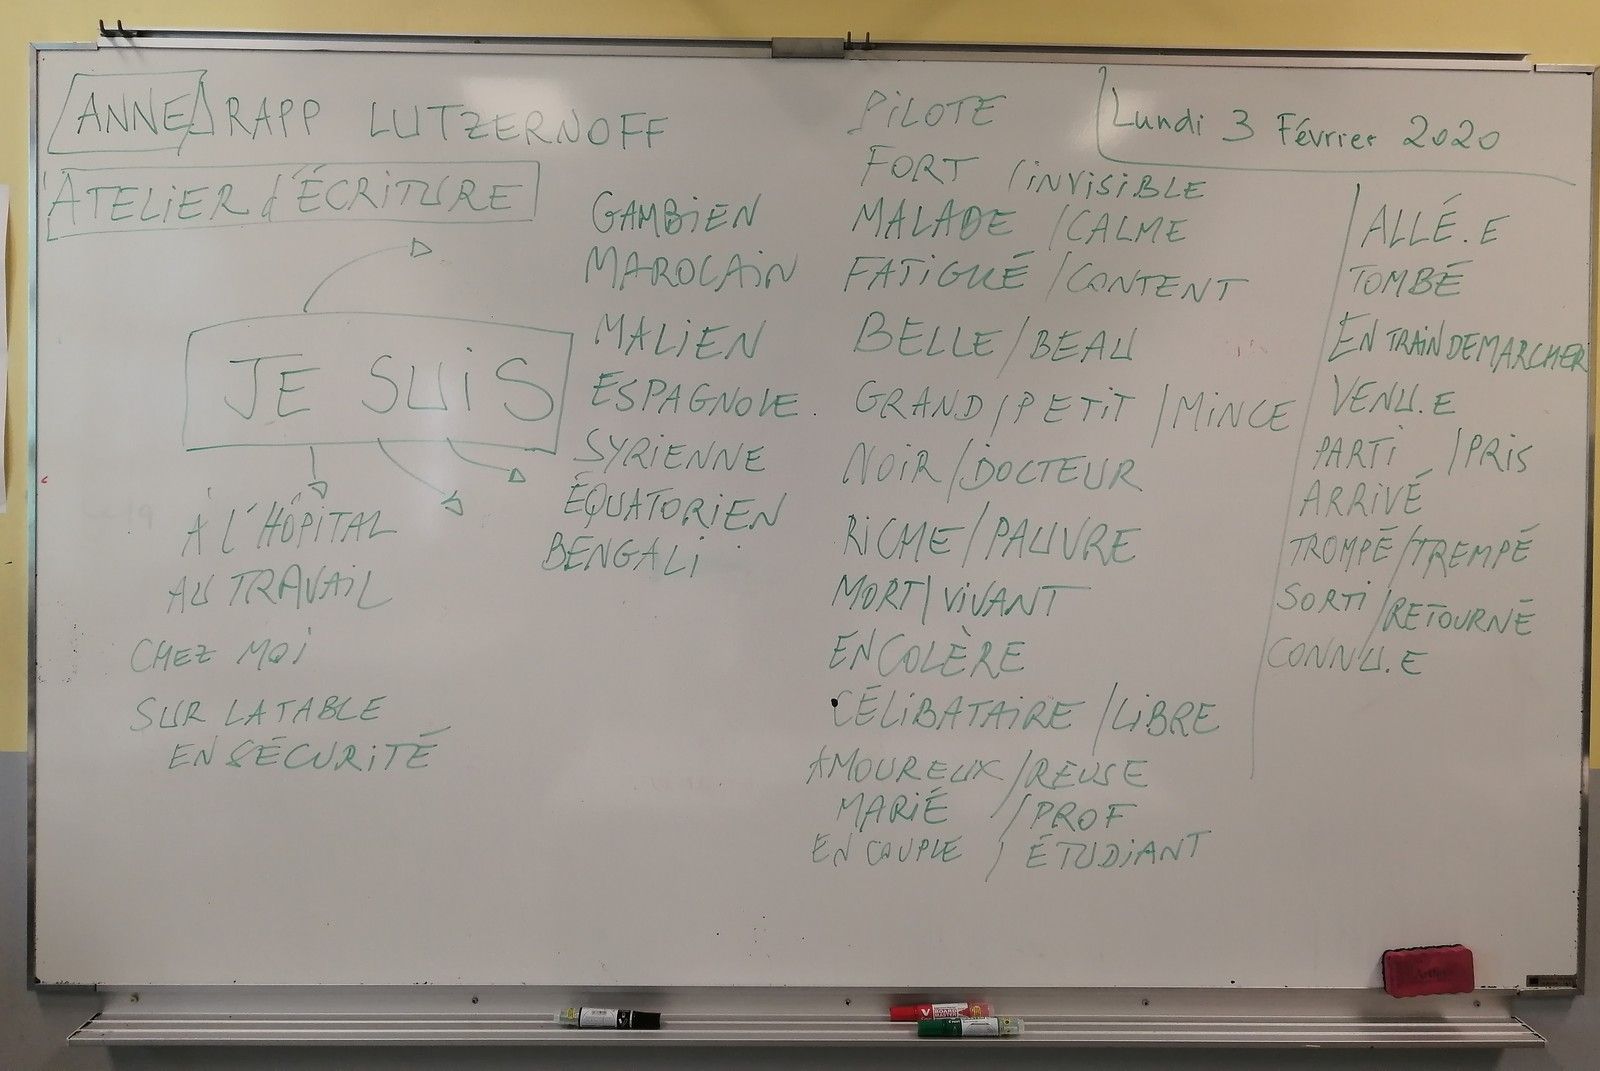 ANNE RAPP LUTZERNOFF
ATELIER d'ÉCRITURE
Lundi 3 Février 2020
JE SUIS
À L'HÔPITAL
AU TRAVAIL
CHEZ MOI
SUR LA TABLE
EN SÉCURITÉ
GAMBIEN
MAROCAIN
MALIEN
ESPAGNOLE
SYRIENNE
ÉQUATORIEN
BENGALI
PILOTE
FORT / INVISIBLE
MALADE / CALME
FATIGUÉ / CONTENT
BELLE / BEAU
GRAND / PETIT / MINCE
NOIR / DOCTEUR
RICHE / PAUVRE
MORT / VIVANT
EN COLÈRE
CÉLIBATAIRE / LIBRE
AMOUREUX / REUSE
MARIÉ / PROF
EN COUPLE / ÉTUDIANT
ALLÉ.E
TOMBÉ
EN TRAIN DE MARCHER
VENU.E
PARTI / PRIS
ARRIVÉ
TROMPÉ / TREMPÉ
SORTI / RETOURNÉ
CONNU.E
V BOARD MASTER